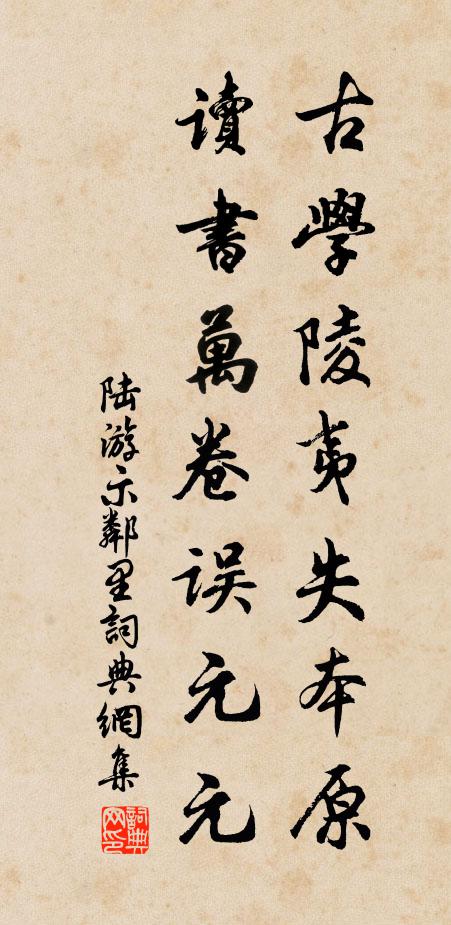 古學陵夷失本原
讀書萬卷误元元
陆游示鄰里詞典網集
詞典网印